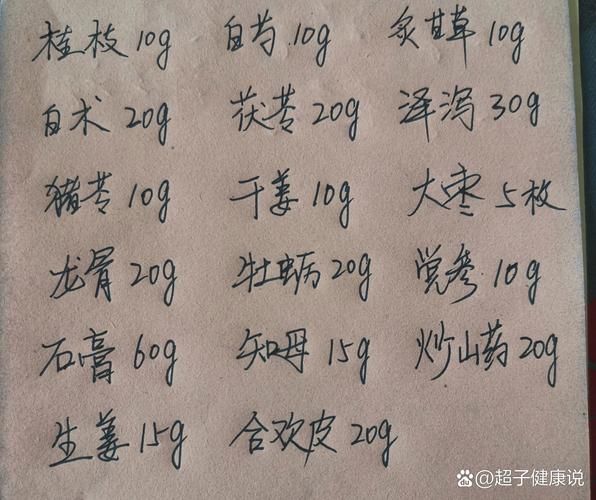 桂枝 10g 白芍 10g 炙甘草 10g
白术 20g 茯苓 20g 泽泻 30g
猪苓 10g 干姜 10g 大枣 5枚
龙骨 20g 牡蛎 20g 党参 10g
石膏 60g 知母 15g 炒山药 20g
生姜 15g 合欢皮 20g
超子健康说